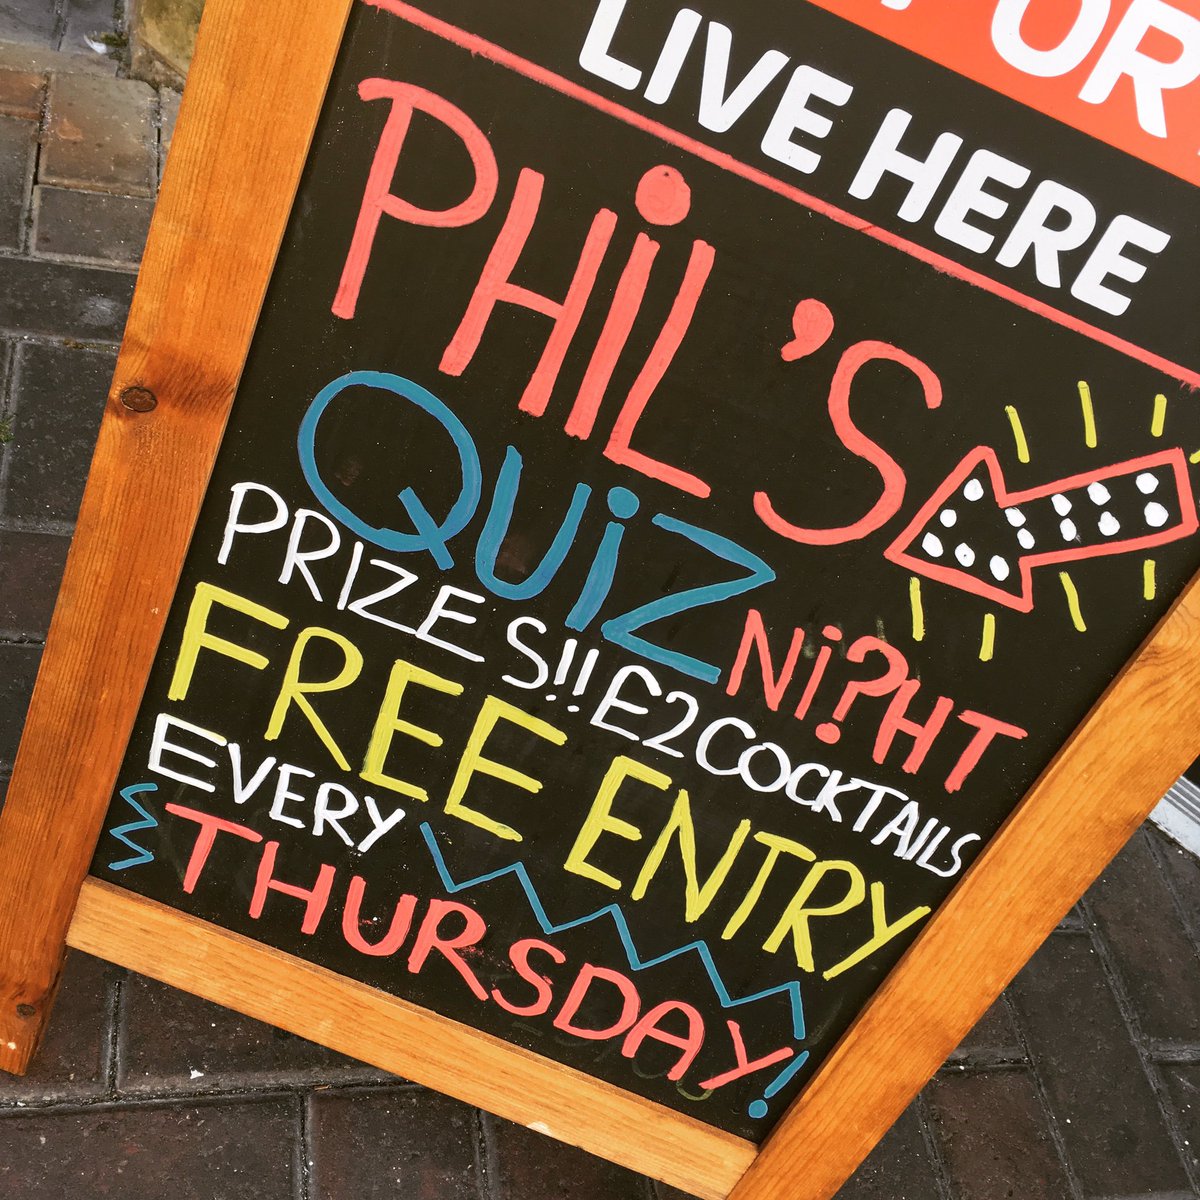 LIVE HERE
PHiL'S
QUiZ Ni?HT
PRIZES!! £2 COCKTAILS
FREE ENTRY
EVERY
THURSDAY!